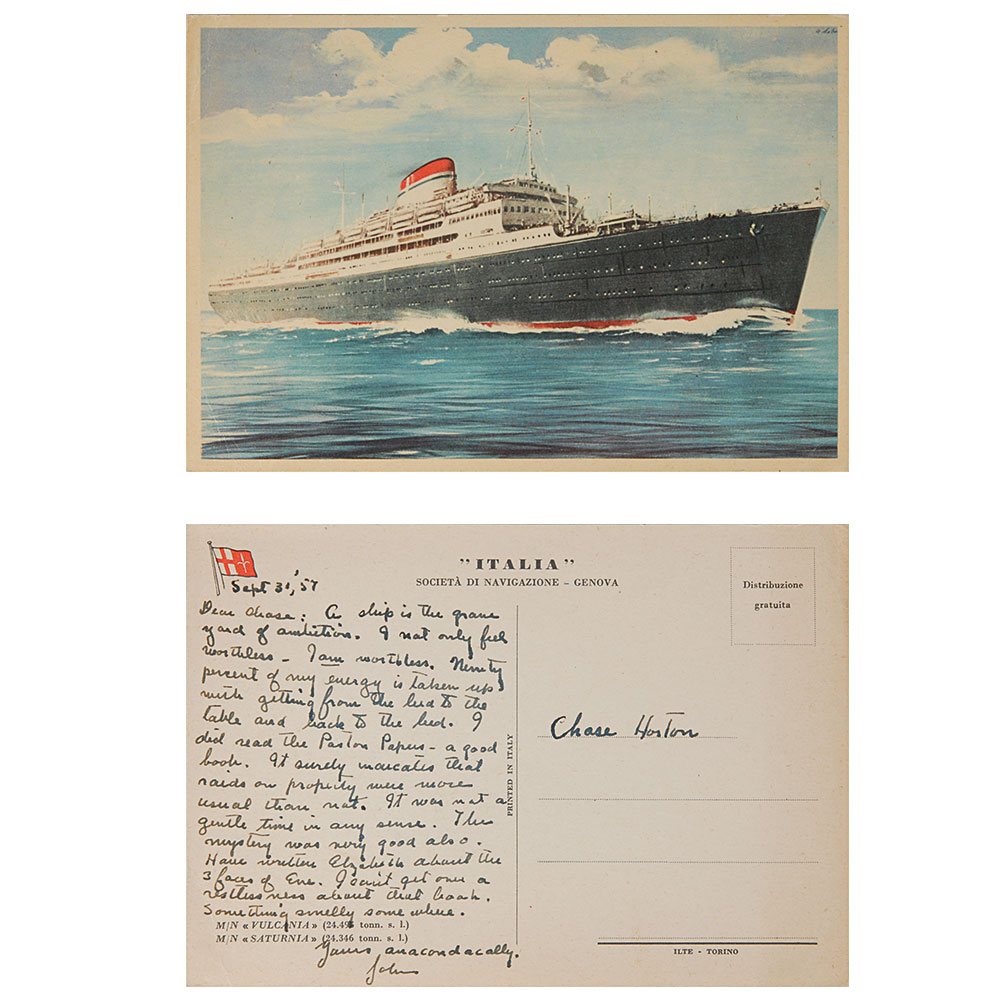 "ITALIA"
SOCIETÀ DI NAVIGAZIONE – GENOVA
Distribuzione
gratuita
Sept 31, '57
Dear Chase: A ship is the grave
yard of ambition. I not only feel
worthless – I am worthless. Ninety
percent of my energy is taken up
with getting from the bed to the
table and back to the bed. I
did read the Paston Papers – a good
book. It surely indicates that
raids on property were more
usual than not. It was not a
gentle time in any sense. The
mystery was very good also.
Have written Elizabeth about the
3 faces of Eve. I can't get over a
restlessness about that book.
Something smelly some where.
M/N «VULCANIA» (24.496 tonn. s. l.)
M/N «SATURNIA» (24.346 tonn. s. l.)
Yours anacondacally.
John
PRINTED IN ITALY
Chase Horton
ILTE - TORINO